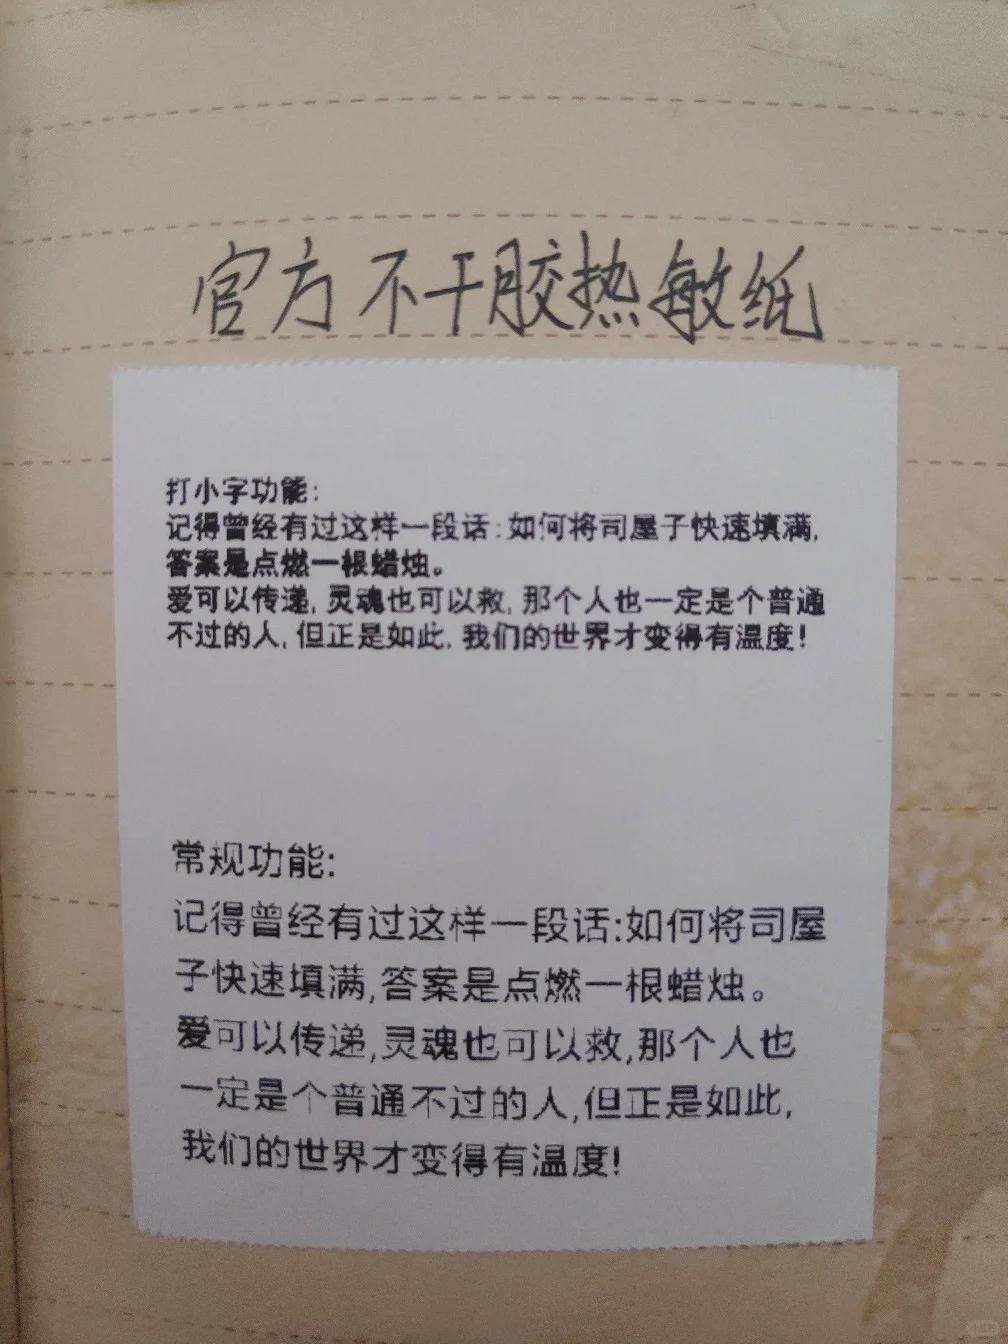 官方不干胶热敏纸
打小字功能:
记得曾经有过这样一段话:如何将司屋子快速填满,
答案是点燃一根蜡烛。
爱可以传递,灵魂也可以救,那个人也一定是个普通
不过的人,但正是如此,我们的世界才变得有温度!
常规功能:
记得曾经有过这样一段话:如何将司屋
子快速填满,答案是点燃一根蜡烛。
爱可以传递,灵魂也可以救,那个人也
一定是个普通不过的人,但正是如此,
我们的世界才变得有温度!